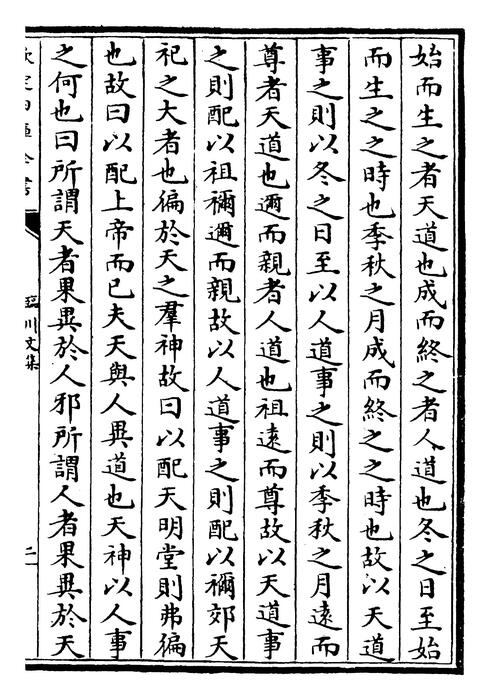 始而生之者天道也成而終之者人道也冬之日至始
而生之之時也季秋之月成而終之之時也故以天道
事之則以冬之日至以人道事之則以季秋之月遠而
尊者天道也邇而親者人道也祖遠而尊故以天道事
之則配以祖禰邇而親故以人道事之則配以禰郊天
祀之大者也徧於天之羣神故曰以配天明堂則弗徧
也故曰以配上帝而已夫天與人異道也天神以人事
之何也曰所謂天者果異於人邪所謂人者果異於天
欽定四庫全書
臨川文集
二